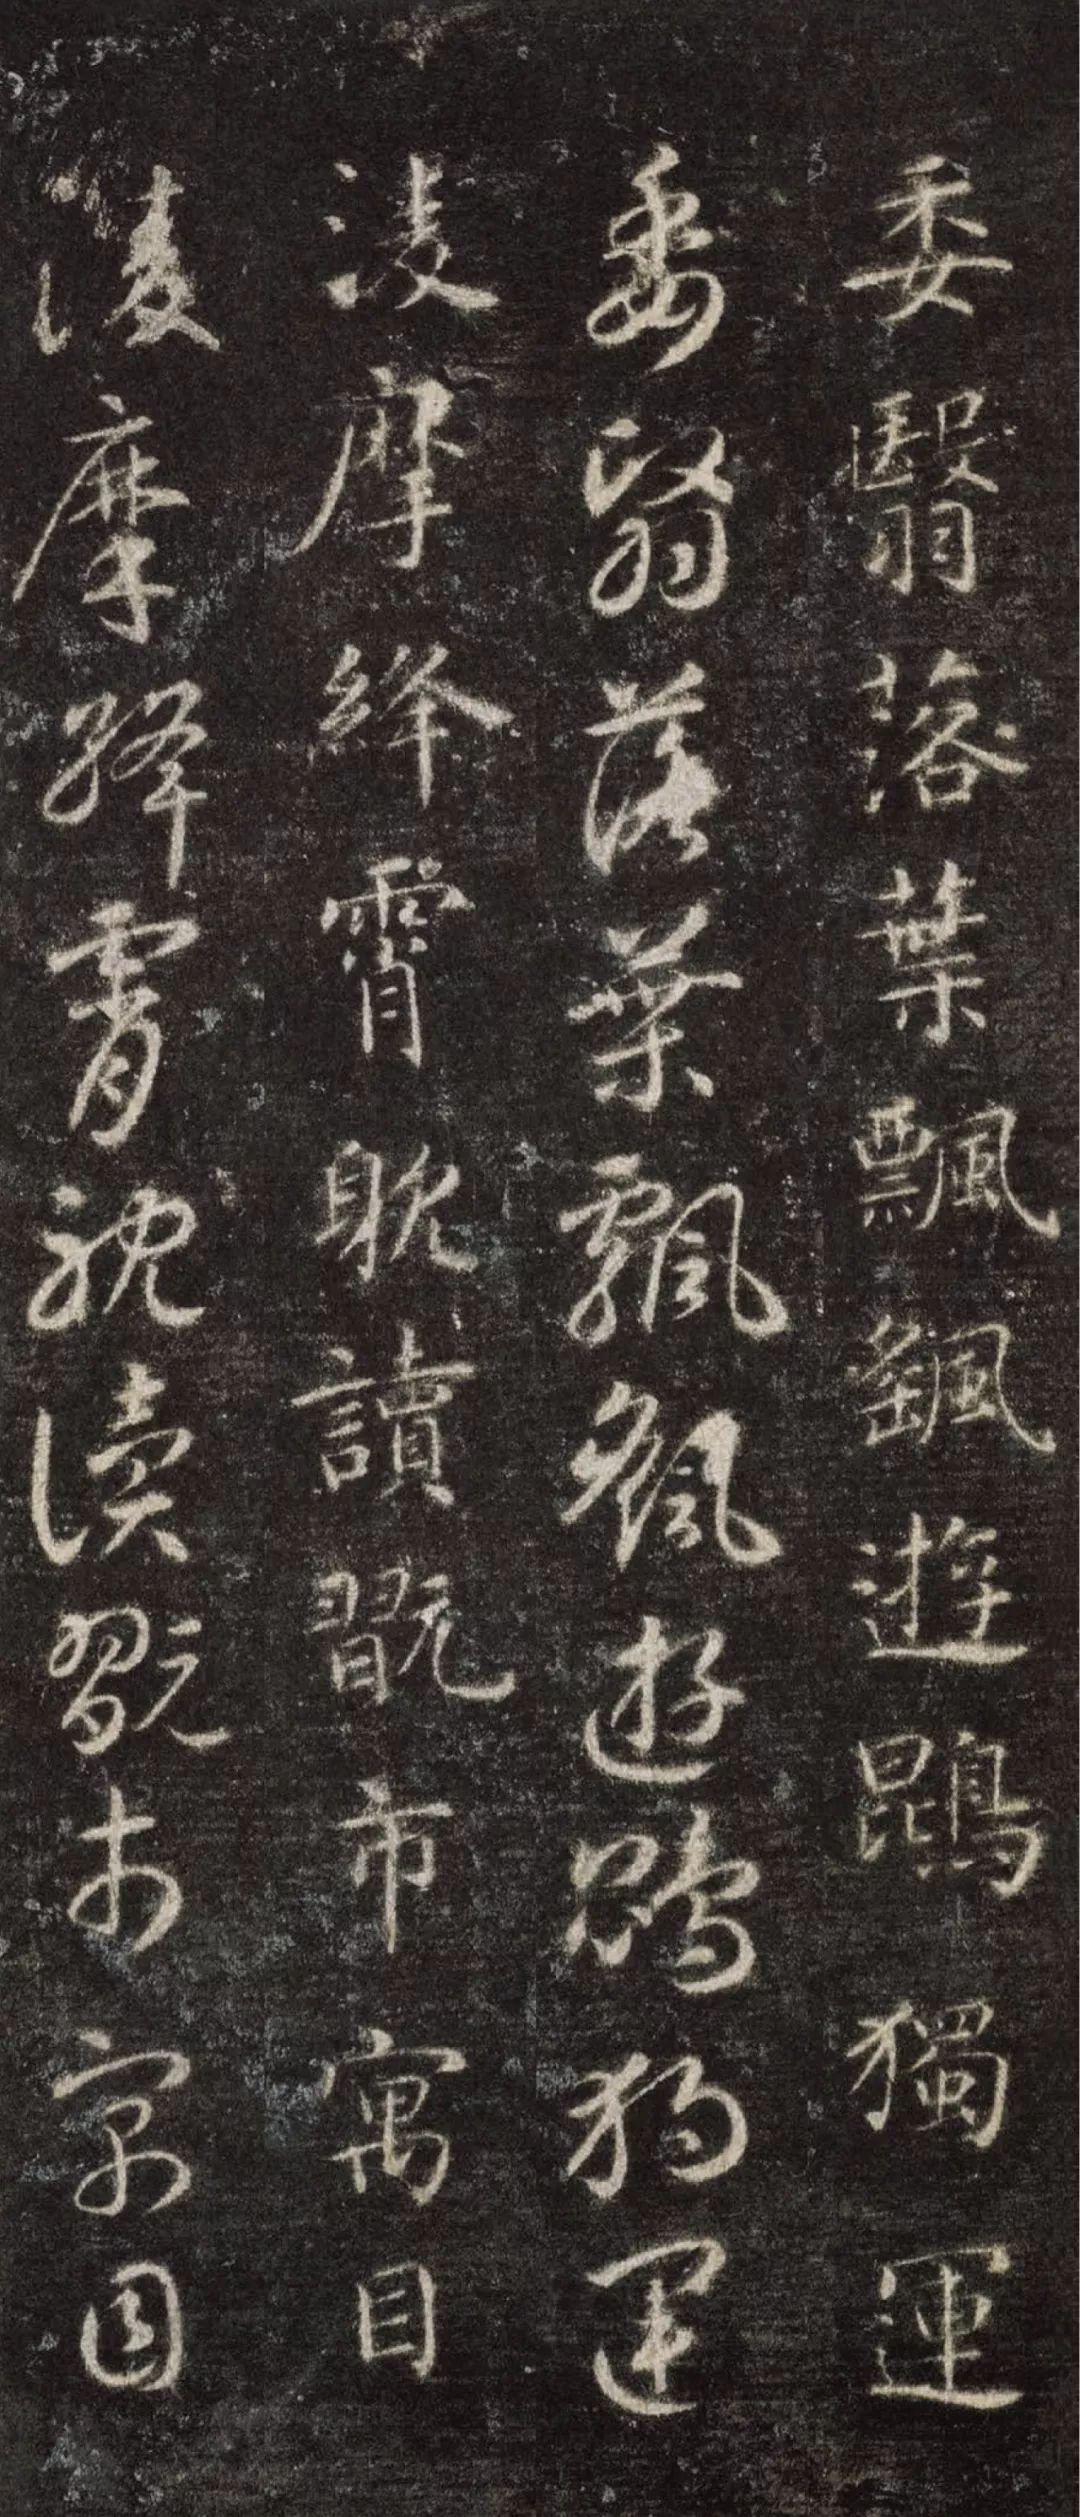 委翳落葉飄颻遊鵾獨運
委翳落葉飄颻遊鵾獨運
凌摩絳霄耽讀翫市寓目
凌摩絳霄耽讀翫市寓目